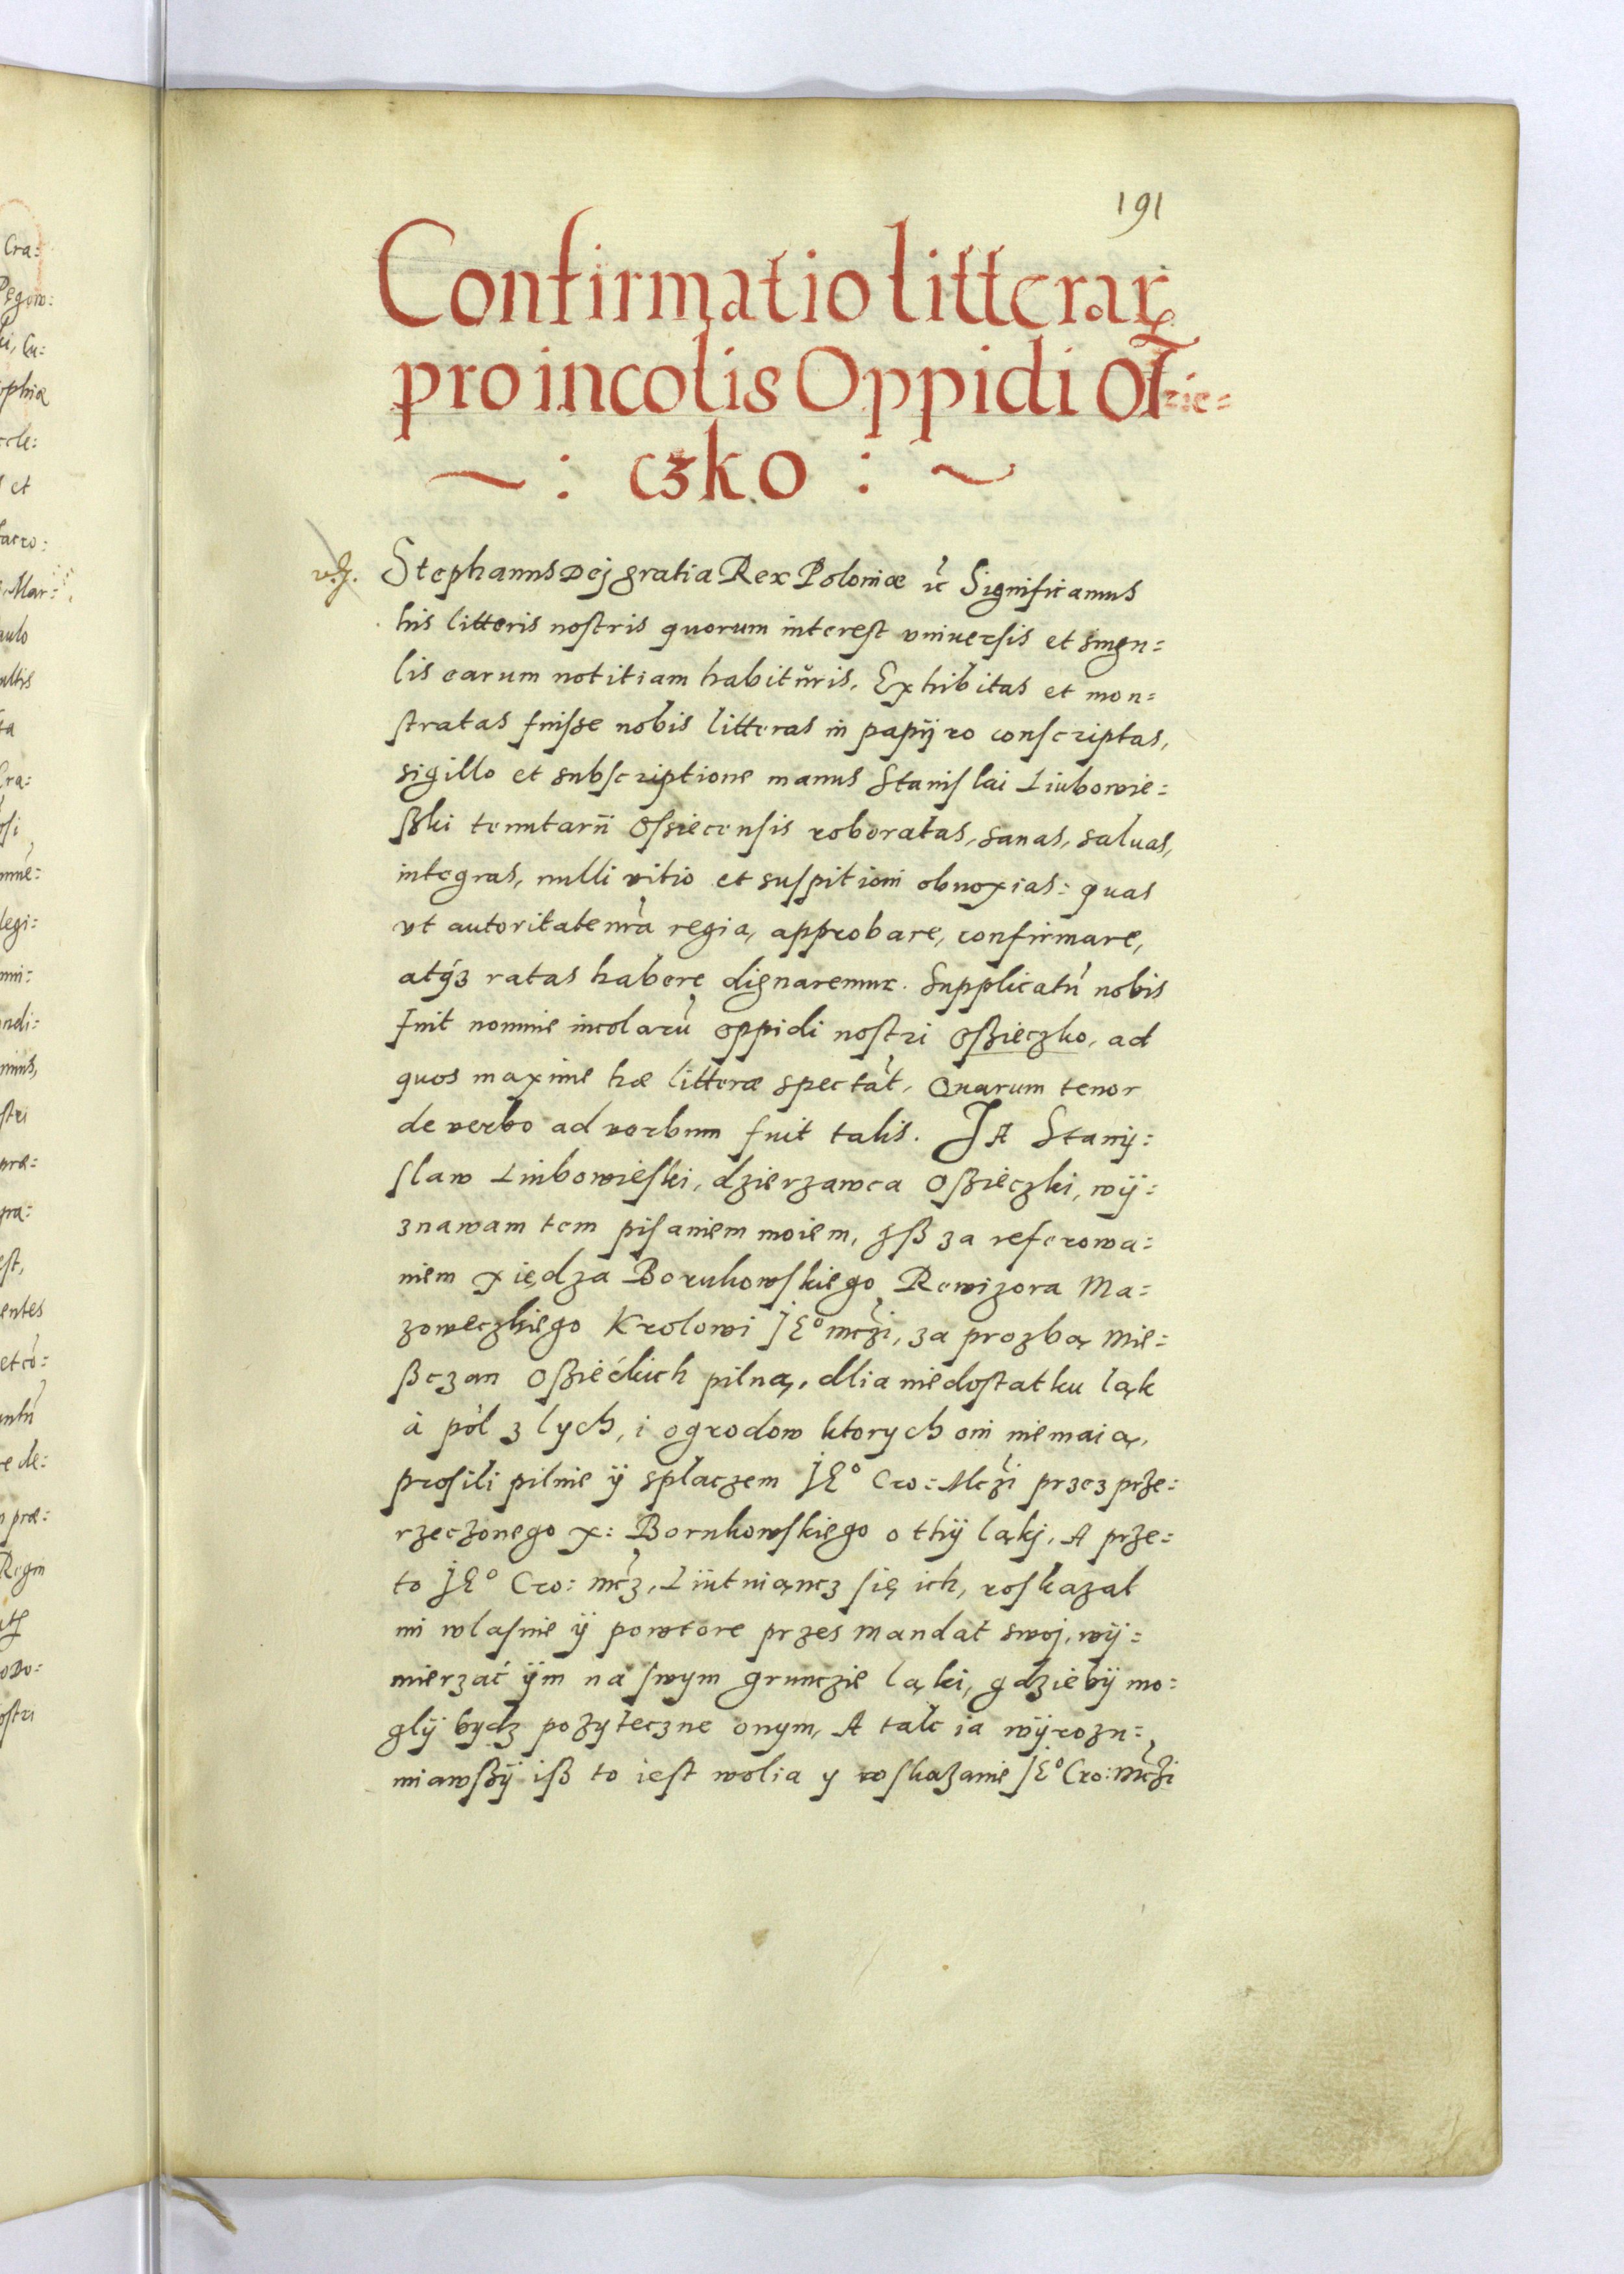 191
Confirmatio litterar
pro incolis Oppidi Oſzie=
~ : czko : ~
Stephanus Dej gratia Rex Poloniæ ec̃ Significamus
his litteris noſtris quorum intereſt vniuerſis et singu=
lis earum notitiam habitŭris. Exhibitas et mon=
ſtratas fuiſse nobis litteras in papÿro conſcriptas,
sigillo et subſcriptione manus Staniſlai Liubowie=
ßki tenutarÿ Oſsiecenſis roboratas, sanas, saluas,
integras, nulli vitio et suſpitioni obnoxias: quas
vt autoritate nr̃a regia, approbare, confirmare,
atq́3 ratas habere dignaremur. Supplicatũ nobis
fuit nomine incolarũ oppidi noſtri Oßieczko, ad
quos maxime hæ litteræ spectãt, Quarum tenor
de verbo ad verbum fuit talis. JA Stanÿ=
ſlaw Liubowieſki, dzierzawca Oßieczki, wÿ=
znawam tem piſaniem moiem, yß za referowa=
niem xiędza Borukowſkiego Rewizora Ma=
zoweczkiego Krolowi JE° mc̃zi, za prozbą Mie=
ßczan Oßiećkich pilną, dlia niedoſtatku ląk
à pól zlych, i ogrodow ktorych oni niemaią,
proſili pilnie ÿ splaczem JE° Cro: Mc̃zi przez prze=
rzeczonego x: Borukowſkiego o thÿ ląkj, A prze=
to JE° Cro: mc̃z, Liiutuiąncz ſię ich, roſkazal
mi wlaſnie ÿ powtore przes mandat swoj, wÿ=
mierzać ÿm na ſwym grunczie ląki, gdziebÿ mo=
glÿ bydz pozyteczne onym, A tak ia wÿrozu=
miawßÿ iß to ieſt wolia y roſkazanie JE° Cro: mc̃zi